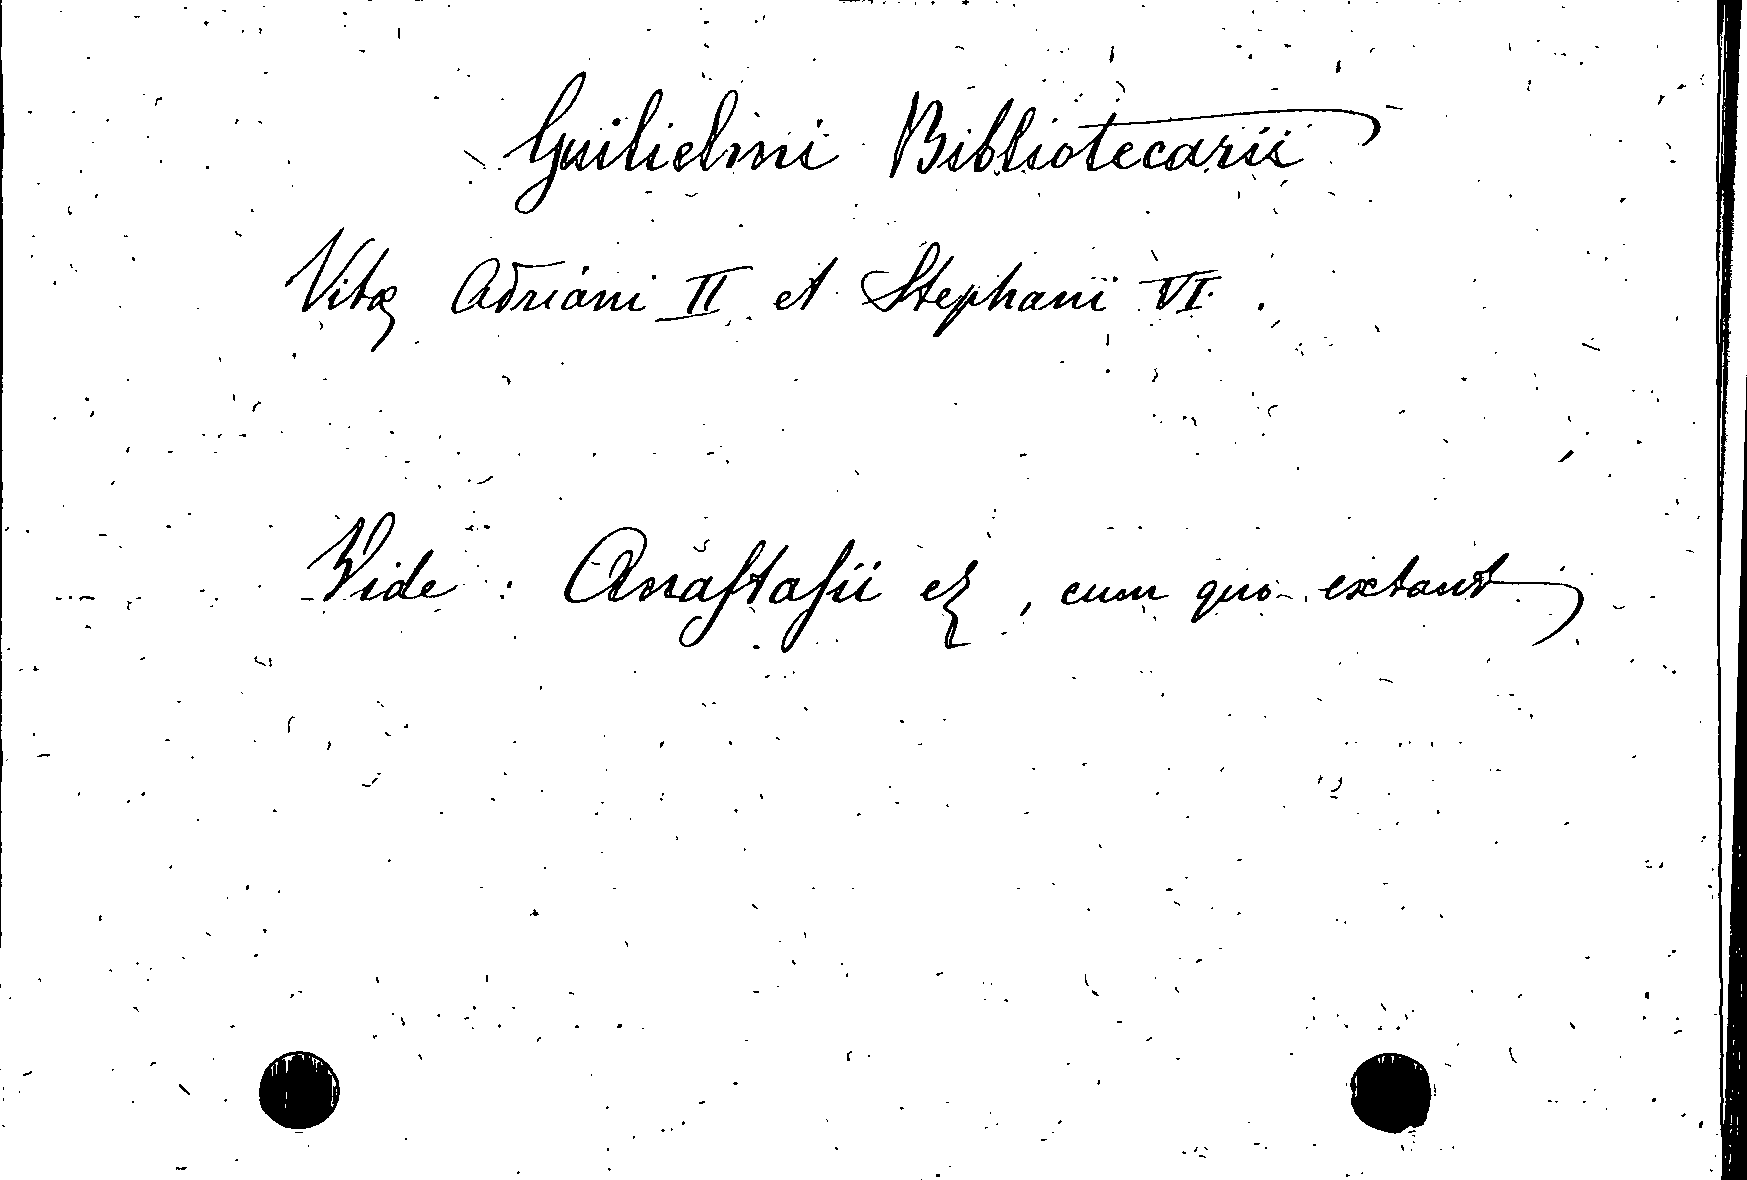 Guilielmi Bibliotecarii
Vitæ Adriani II et Stephani VI.
Vide : Anaſtaſii , cum quo extant